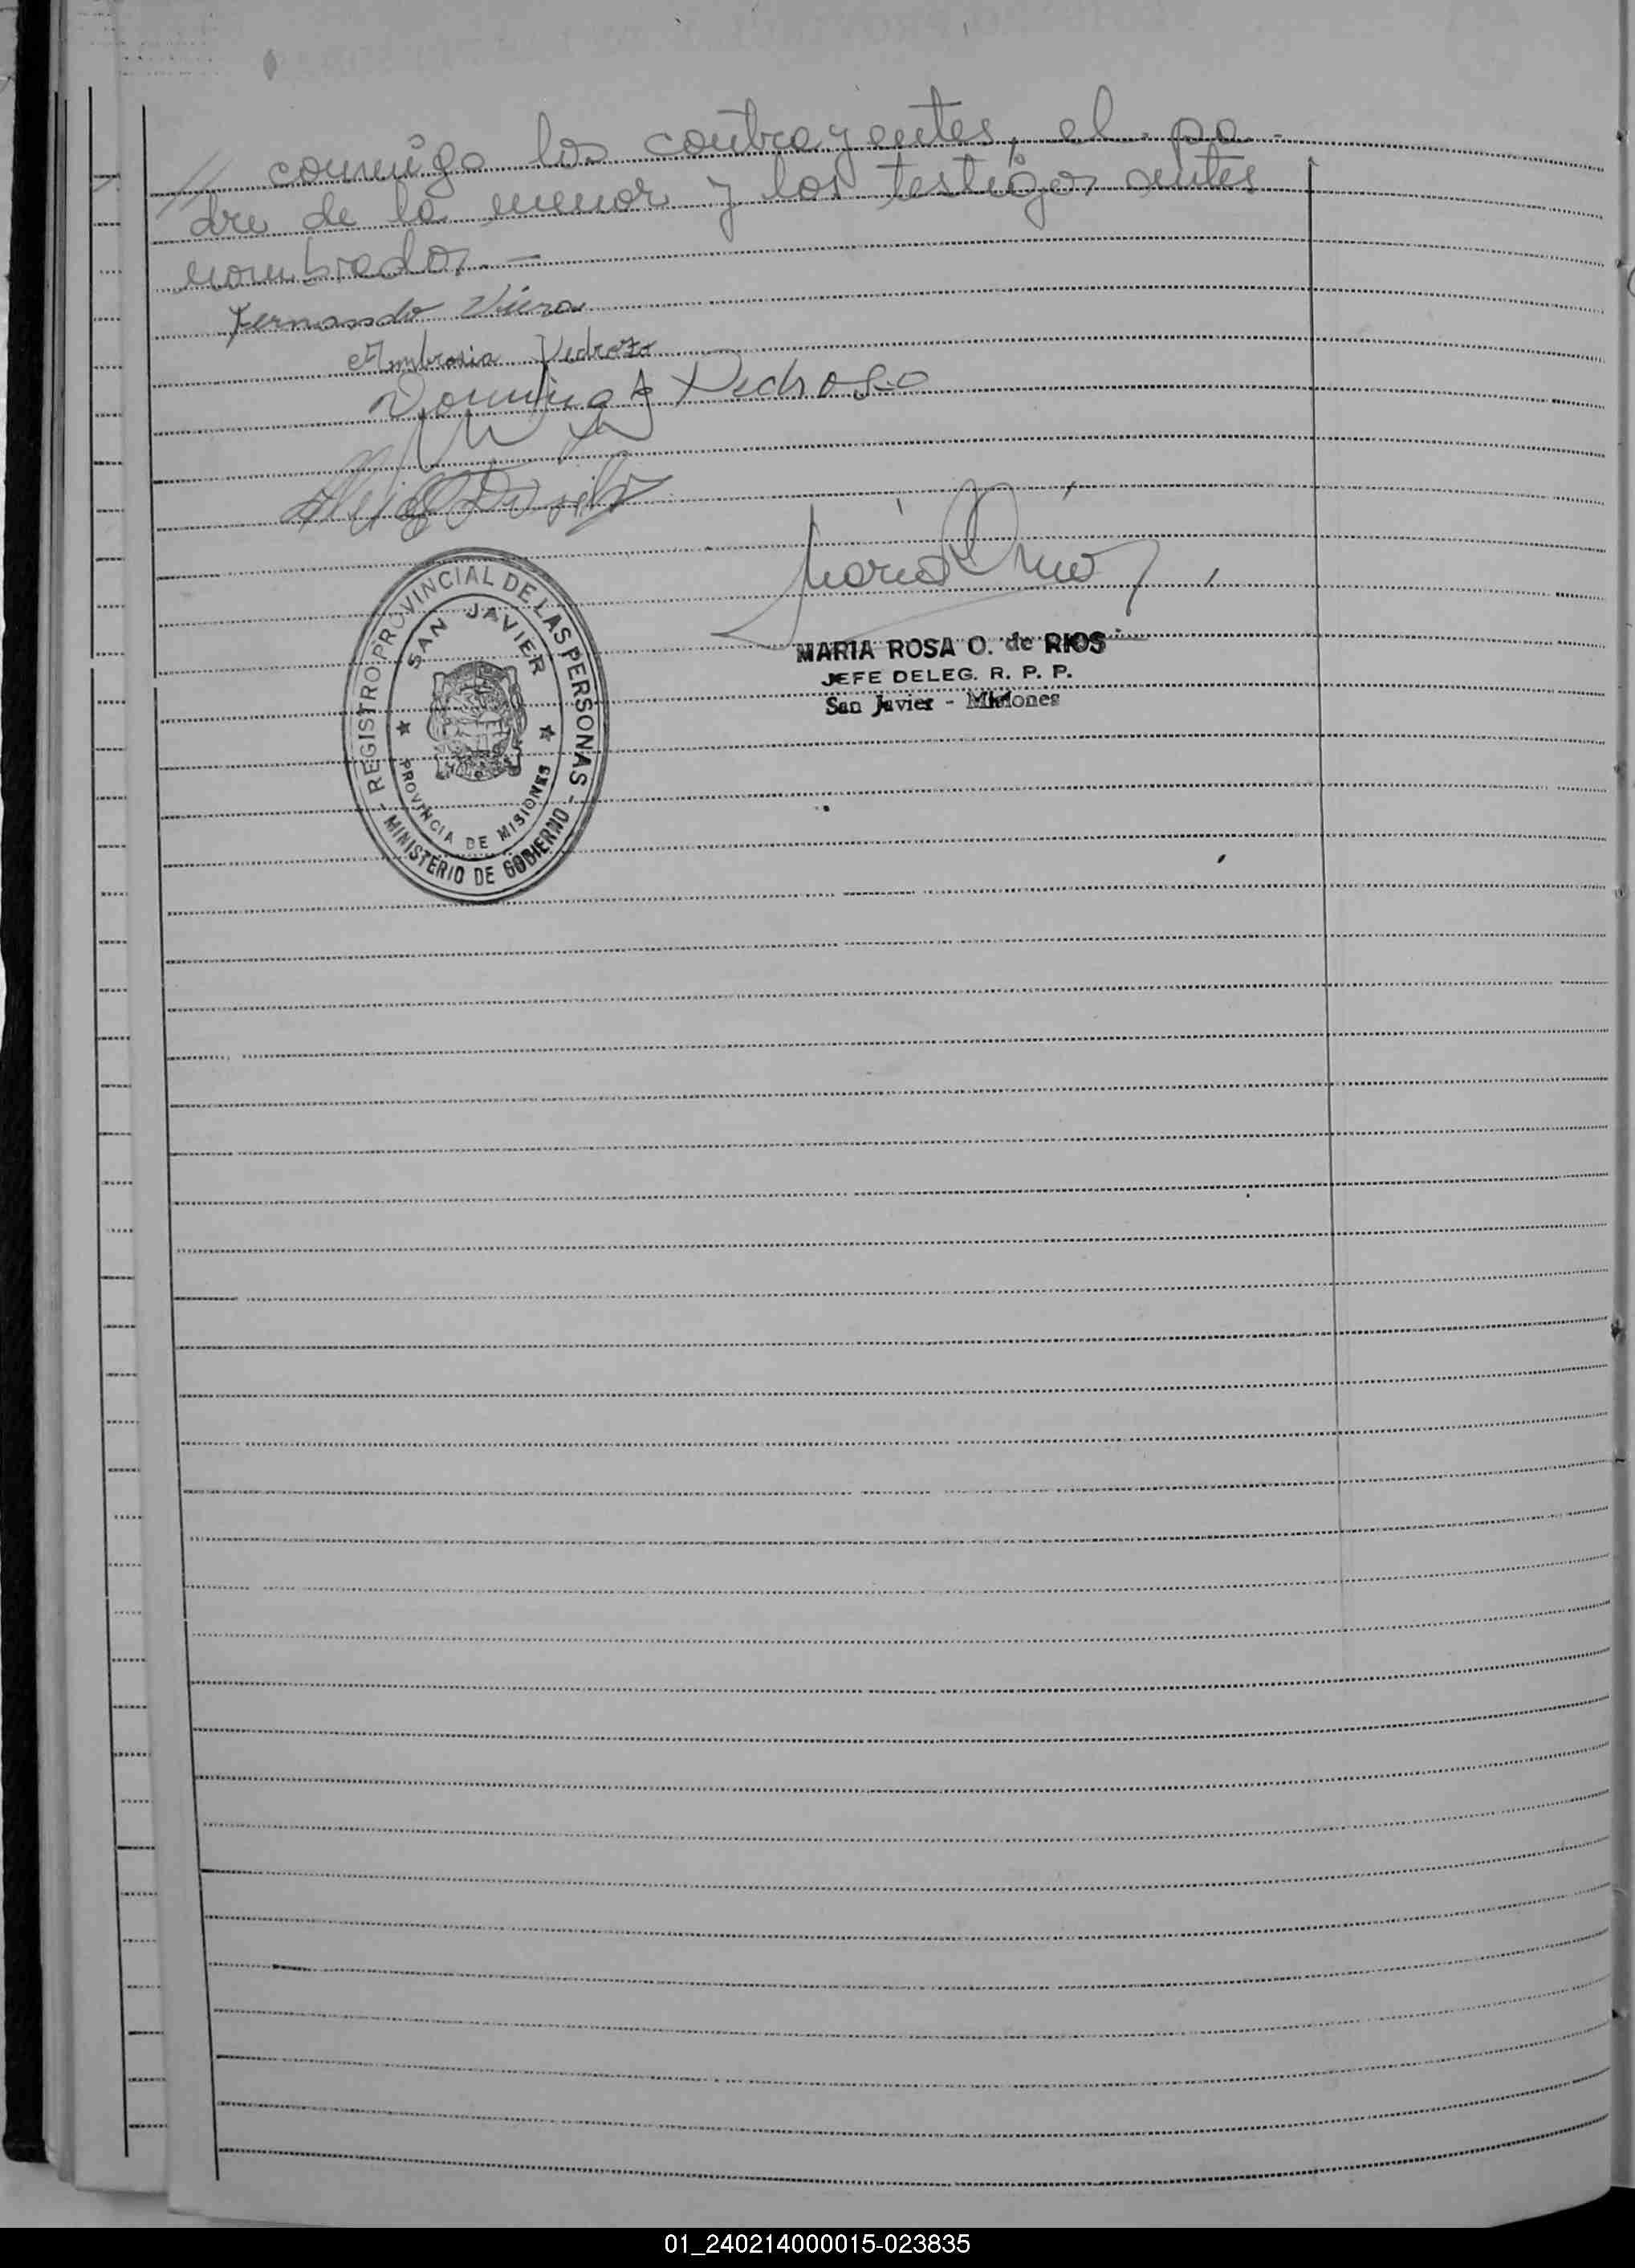 // conmigo los contrayentes, el pa-
dre de la menor y los testigos antes
nombrados.-
Fernando Viera
Ambrosia Pedrozo
Domingo Pedroso
REGISTRO PROVINCIAL DE LAS PERSONAS
SAN JAVIER
PROVINCIA DE MISIONES
- MINISTERIO DE GOBIERNO -
MARIA ROSA O. de RIOS
JEFE DELEG. R. P. P.
San Javier - Misiones
01_240214000015-023835